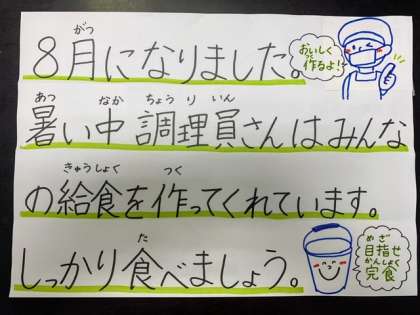 がつ
8月になりました。
おいしく
作るよ!
あつ なか ちょうりいん
暑い中調理員さんはみんな
きゅうしょく つく
の給食を作ってくれています。
た
しっかり食べましょう。
めざ
目指せ
かんしょく
完食